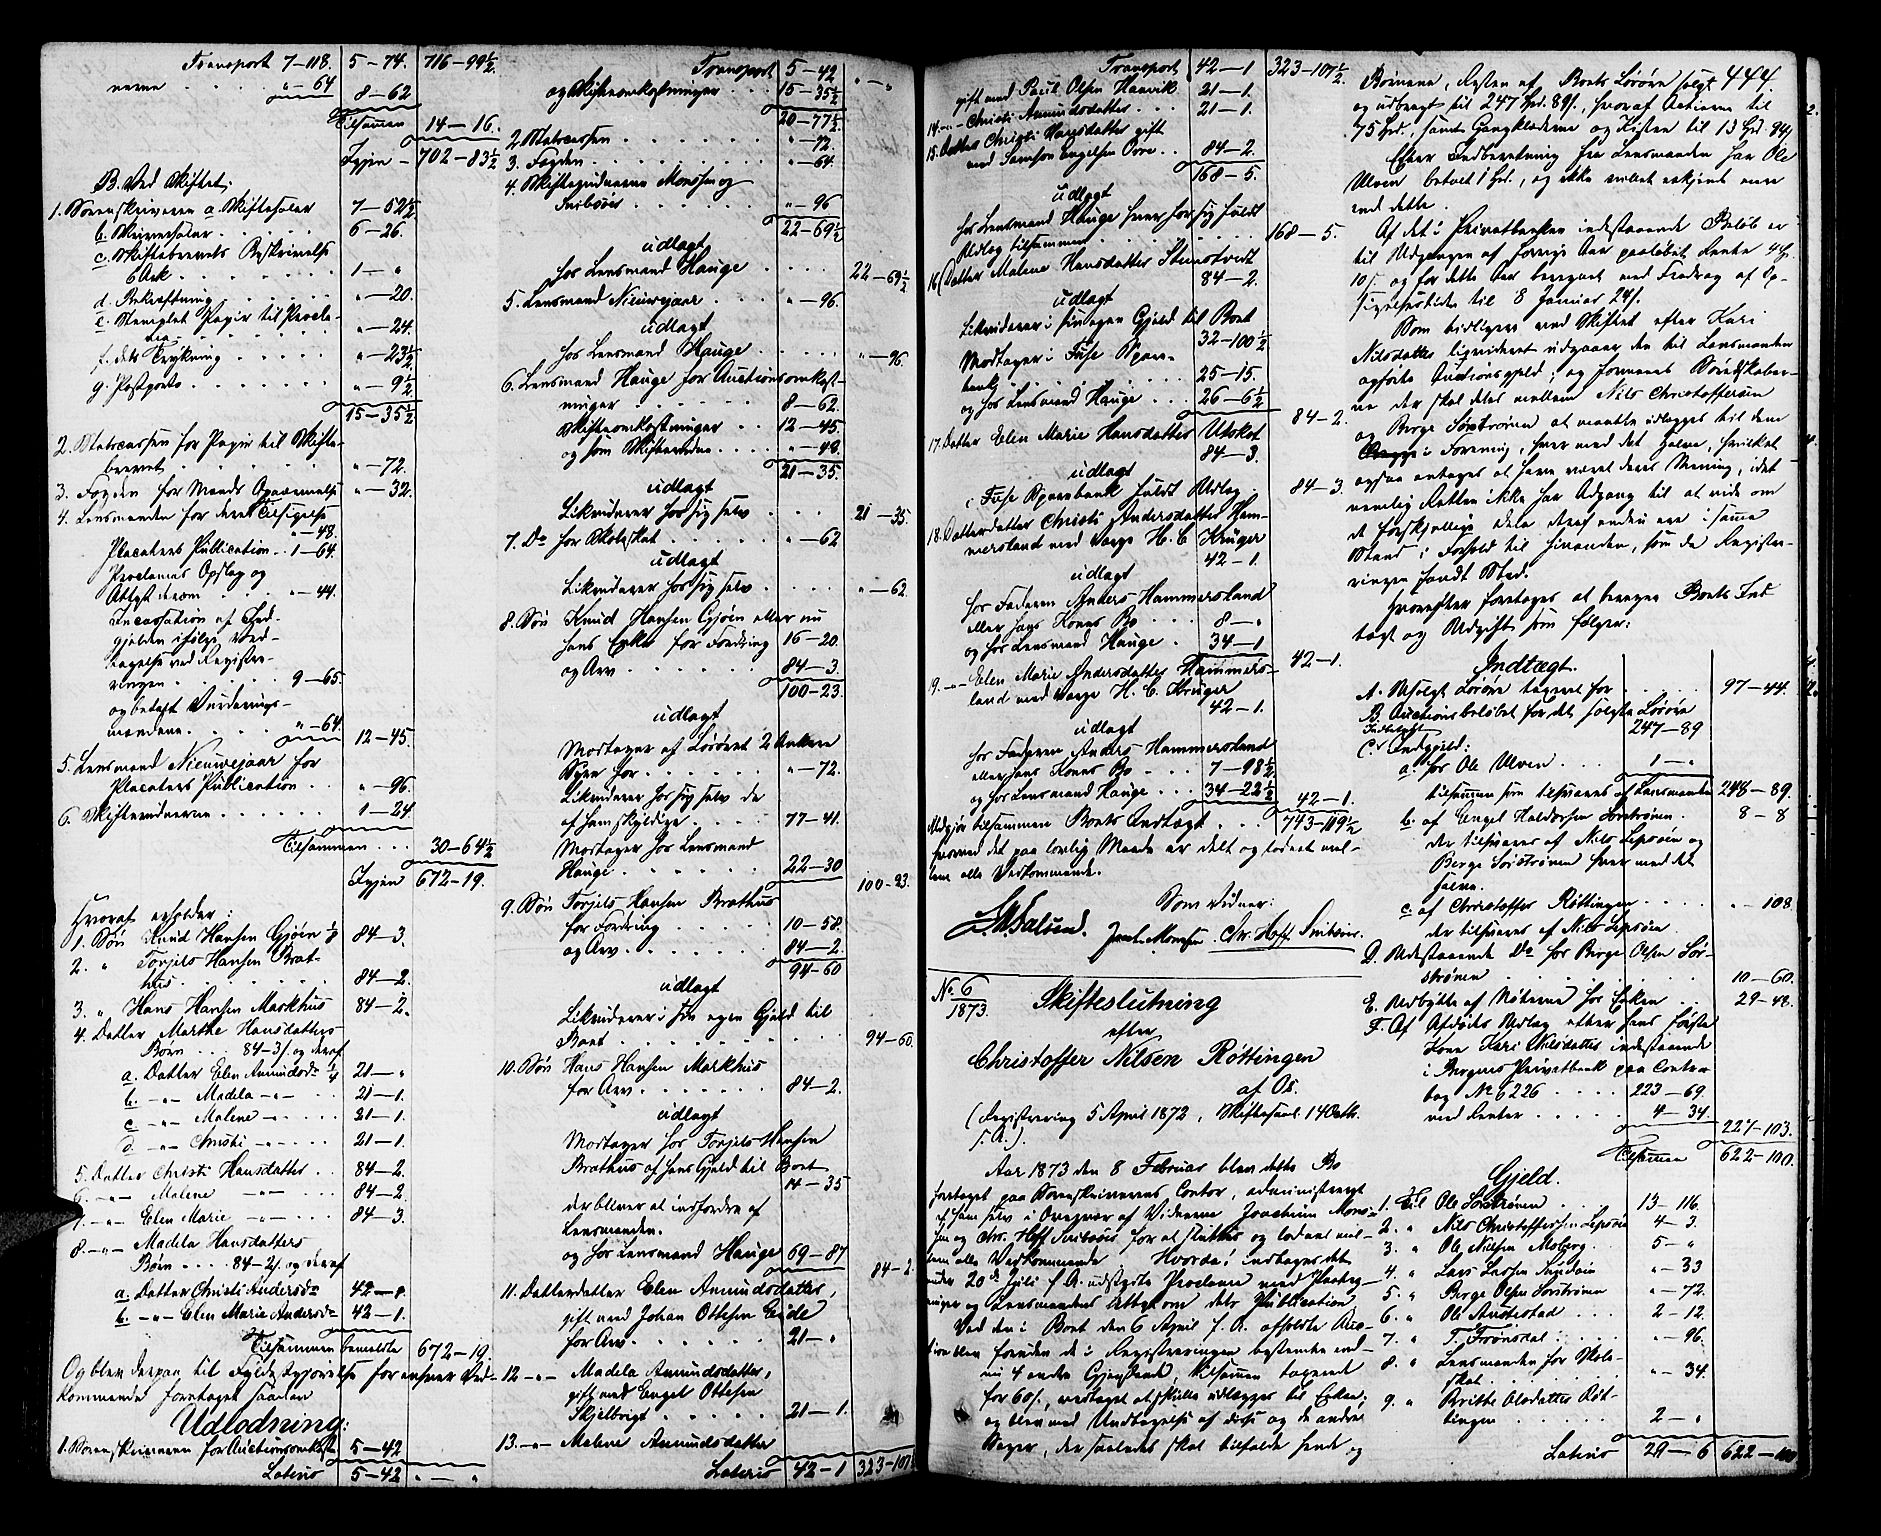 Transport 7-118. 5-74. 716-99½.
nerne . . . . "-64 8-62
Tilsammen 14-16.
Igjen - 702-83½
B. Ved Skiftet:
1. Sorenskriveren a. Skiftesalær 7-52½
b. Skriversalær . . . . 6-26.
c. Skiftebrevets Beskrivelse
6 Ark . . . . 1-"
d. Bekræftning . . . . "-20.
e. Stemplet Papir til Procla-
ma . . . . "-24.
f. dets Trykning . . . . "-23½
g. Postporto . . . . "-9½
15-35½
2. Statscassen for Papir til Skifte-
brevet . . . . "-72.
3. Fogden for Mands Opnævnelse "-32.
4. Lensmanden for deres Tilsigelse
"-48.
Placaters Publication . . 1-64.
Proclamas Opslag og
Attest derom . . . "-44.
Incassation af Ind-
gjelden ifølge Ved-
tagelse ved Registre-
ringen . . . . 9-65.
og betalt Vurderings-
mændene . . . . "-64. 12-45.
5. Lensmand Nieuwejaar for
Placaters Publication . . "-96.
6. Skiftevidnerne . . . . 1-24
Tilsammen . . . 30-64½
Igjen 672-19.
Hvoraf erholder:
1. Søn Knud Hansen Gjøen 84-3.
2. " Torjels Hansen Brat-
hus . . . . 84-2.
3. " Hans Hansen Markhus 84-2.
4. Datter Marthe Hansdatters
Børn . . . 84-3/ og deraf
a. Datter Elen Amundsdr ¼ 21-"
b. -"- Madela -"- . . 21-1.
c. -"- Malene -"- . . . 21-1.
d. -"- Christi -"- . . . 21-1.
5. Datter Christi Hansdatter . . 84-2.
6. -"- Malene -"- . . . 84-2.
7. -"- Elen Marie -"- . . . 84-3.
8. -"- Madela Hansdatters
Børn . . . 84-2/ og deraf
a. Datter Christi Andersdr 42-1.
b. -"- Elen Marie Andersdr 42-1.
Tilsammen bemeldte 672-19.
Og blev derpaa til Fyldestgjørelse for enhver Ved-
kommende foretaget saadan
Udlodning:
1. Sorenskriveren for Auctionsomkostn. 5-42
Lateris 5-42 "-"
Transport 5-42 "-"
og Skifteomkostninger . . . 15-35½
20-77½.
2. Statscassen . . . . "-72.
3. Fogden . . . . "-64.
4. Skiftevidnerne Monssen og
Sviboïs . . . . "-96
22-69½
udlagt
hos Lensmand Hauge . . . . 22-69½
5. Lensmand Nieuwejaar . . . "-96.
udlagt
hos Lensmand Hauge . . . . "-96.
6. Lensmand Hauge for Auctionsomkost-
ninger . . . . 8-62.
Skifteomkostninger . . 12-45.
og som Skiftevidne . . . "-48.
21-35.
udlagt
Likviderer hos sig selv . . . 21-35.
7. Do for Skoleskat . . . . "-62
udlagt
Likviderer hos sig selv . . . . "-62
8. Søn Knud Hansen Gjøen eller nu
hans Enke for Fordring 16-20.
og Arv . . . . 84-3.
100-23.
udlagt
Modtager af Løsøret 2 Ankere
Syer for . . . . "-72.
Likviderer hos sig selv de
af ham skyldige . . . . 77-41.
Modtager hos Lensmand
Hauge . . . . 22-30
100-23.
9. Søn Torjels Hansen Brathus
for Fordring . . . . 10-58.
og Arv . . . . 84-2.
94-60
udlagt
Likviderer i sin egen Gjeld til
Boet . . . . 94-60.
10. Søn Hans Hansen Markhus
for Arv . . . . 84-2.
udlagt
Modtager hos Torjels Hansen
Brathus af hans Gjeld til Boet
14-35
der bliver at indfordre af
Lensmanden.
og hos Lensmand Hauge 69-87
84-2.
11. Datterdatter Elen Amundsdatter,
gift med Johan Ottesen Eide
for Arv . . . . 21-"
12. -"- Madela Amundsdatter,
gift med Engel Ottesen
Skjelbreigt . . . . 21-1.
13. -"- Malene Amundsdatter
Lateris 42-1 323-107½
Transport 42-1 323-107½.
gift med Peril Olsen Haavik 21-1.
14. -"- Christi Amundsdatter . . . 21-1.
15. Datter Christi Hansdatter gift
med Samson Engelsen Orre . . 84-2.
168-5.
udlagt
hos Lensmand Hauge hver for sig fuldt
Udlæg tilsammen . . . . 168-5.
16. Datter Malene Hansdatter Stuestvedt
84-2.
udlagt
Likviderer i sin egen Gjeld til Boet
32-100½
Modtager i Fuse Spare-
bank . . . . 25-15.
og hos Lensmand Hauge . . . 26-6½
84-2.
17. Datter Elen Marie Hansdatter Utskot
84-3.
udlagt
i Fuse Sparebank fuldt Udlæg . 84-3.
18. Datterdatter Christi Andersdatter Ham-
mersland med Værge H. C. Krüger
42-1.
udlagt
hos Faderen Anders Hammersland
eller hans Kones Bo . . . 8-"
og hos Lensmand Hauge . 34-1
42-1.
19. -"- Elen Marie Andersdatter Hammers-
land med Værge H. C. Krüger
42-1.
udlagt
hos Faderen Anders Hammersland
eller hans Kones Bo . . . 7-98½.
og hos Lensmand Hauge . . . 34-22½
42-1.
Udgjør tilsammen Boets Indtægt . . . 743-119½
hvorved det paa lovlig Maade er delt og loddnet mel-
lem alle Vedkommende.
Som Vidner:
Joach. Monssen. Chr. Hoff Sviboïs.
No. 6
1873.
Skifteslutning
efter
Christoffer Nilsen Røttingen
af Os.
(Registrering 5 April 1872, Skiftesaml. 14 Octb.
s. A.).
Aar 1873 den 8 Februar blev dette Bo
foretaget paa Sorenskriverens Contor, administreret
af ham selv i Overvær af Vidnerne Joachim Mons-
sen og Chr. Hoff Sviboïs for at sluttes og loddnes mel-
lem alle Vedkommende. Hvorda: indtoges det
under 20de Juli f. A. udstedte Proclama med Paateg-
ninger og Lensmandens Attest om dets Publication.
Ved den i Boet den 6 April f. A. afholdte Auc-
tion blev foruden de i Registreringen bestemte end-
nu 4 andre Gjenstande, tilsammen taxeret
for 60/, vedtaget at skulle udlægges til Enken;
og blev med Undtagelse af disse og de andre
Sager, der saaledes skal tilfalde hende og
Børnene, Resten af Boets Løsøre solgt 444.
og udbragt til 247 Spd. 89/., hvoraf Actierne til
75 Spd., samt Gangklæderne og Kisten til 13 Spd. 84/
Efter Indberetning fra Lensmanden har Ole
Ulven betalt 1 Spd., og ikke villet erkjende mere
end dette.
Af det i Privatbanken indestaaende Beløb er
til Udgangen af forrige Aar paaløbet Renter 4 Sp.
10/ og for dette Aar beregnet med Fradrag af Op-
sigelsestide til 8 Januar 24/.
Som tidligere ved Skiftet efter Kari
Nilsdatter ligvideret udgaaer den til Lensmanden
opførte Auctionsgjeld; og formenes Børneskaber-
ne der skal deles mellem Nils Christoffersen
og Berge Sørstrønen at maatte udlægges til dem
begge i Forening, hver med det Halve, hvilket
ogsaa antages at have været deres Mening, idet
nemlig Retten ikke har Adgang til at vide om
de forskjellige Dele deraf endnu ere i samme
Stand i Forhold til hinanden, som da Registre-
ringen fandt Sted.
Hvorefter foretoges at beregne Boets Ind-
tægt og Udgift som følger:
Indtægt.
A. Usolgt Løsøre taxeret for . . . 97-44.
B. Auctionsbeløbet for det solgte Løsøre
247-89
C. Indbetalt Indgjeld:
a. hos Ole Ulven . . . 1-"
tilsammen som tilsvares af Lensmanden 248-89.
b. af Engel Haldorsen Sørstrønen . 8-8
der tilsvares af Nils Lepsøen og
Berge Sørstrønen hver med det
halve.
c. af Christoffer Røttingen . . . . "-108.
der tilsvares af Nils Lepsøen.
D. Udestaaende Do hos Berge Olsen Sør-
strønen . . . . 10-60.
E. Udbytte af Nøterne hos Enken . . 29-48.
F. Af Afdødes Udlæg efter hans første
Kone Kari Nilsdatter indestaaende
i Bergens Privatbank paa Contra-
bog No 6226 . . . . 223-69.
med Renter . . . . 4-34.
227-103.
Tilsammen 622-100.
Gjeld.
1. Til Ole Sørstrønen . . . 13-116.
2. " Nils Christoffersen Lepsøen 4-3.
3. " Ole Nilsen Moberg . . 5-"
4. " Lars Larsen . . "-33
5. " Berge Olsen Sørstrønen "-72.
6. " Ole Austestad . . . 2-12.
7. " T. Frønsdal . . . . "-96.
8. " Lensmanden for Skole-
skat . . . . "-34.
9. " Britte Olsdatter Røt-
tingen . . . . 2-"
Lateris 29-6 622-100